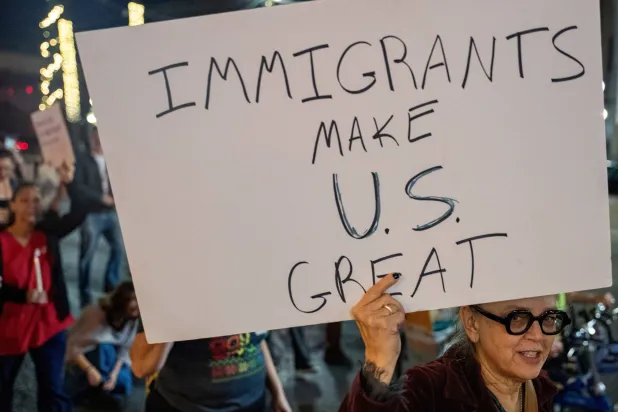 IMMIGRANTS
MAKE
U.S.
GREAT